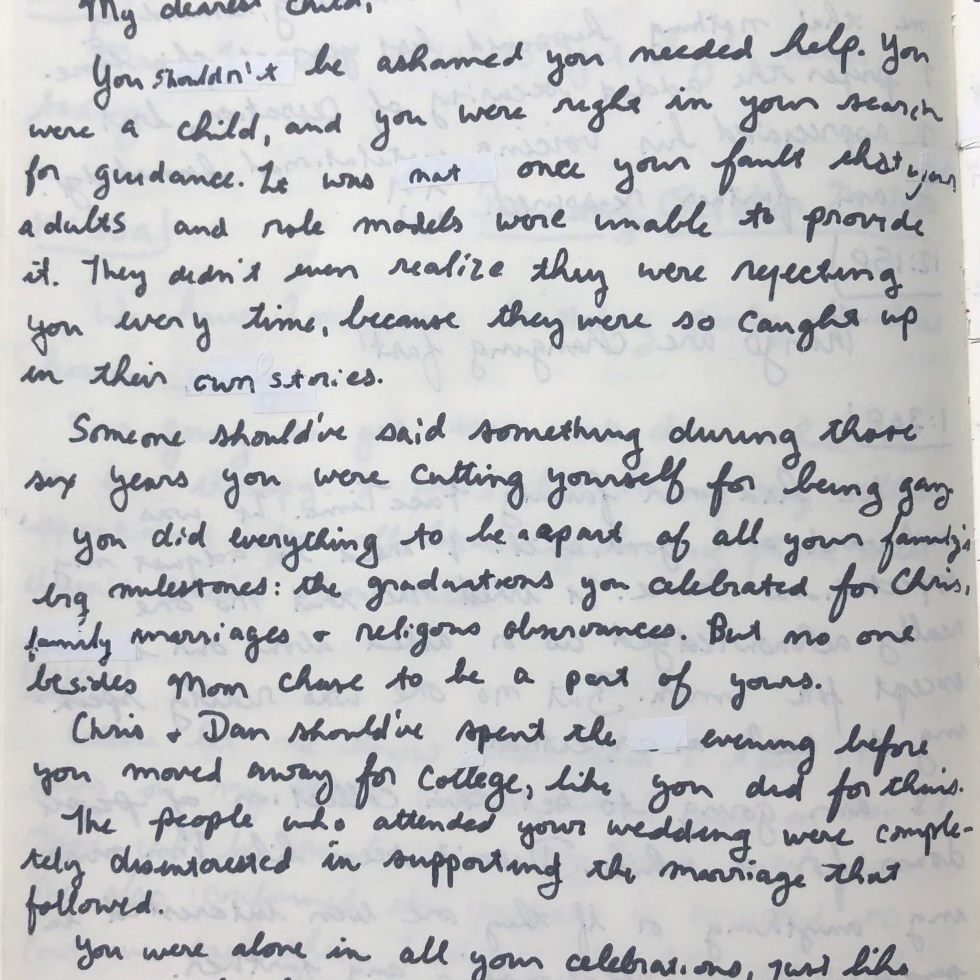 My dearest child,
You shouldn't be ashamed you needed help. You
were a child, and you were right in your search
for guidance. It was not once your fault that your
adults and role models were unable to provide
it. They didn't even realize they were rejecting
you every time, because they were so caught up
in their own stories.
Someone should've said something during those
six years you were cutting yourself for being gay.
You did everything to be a part of all your family's
big milestones: the graduations you celebrated for Chris,
family marriages & religous observances. But no one
besides Mom chose to be a part of yours.
Chris & Dan should've spent the evening before
you moved away for college, like you did for theirs.
The people who attended your wedding were comple-
tely disinterested in supporting the marriage that
followed.
You were alone in all your celebrations, just like